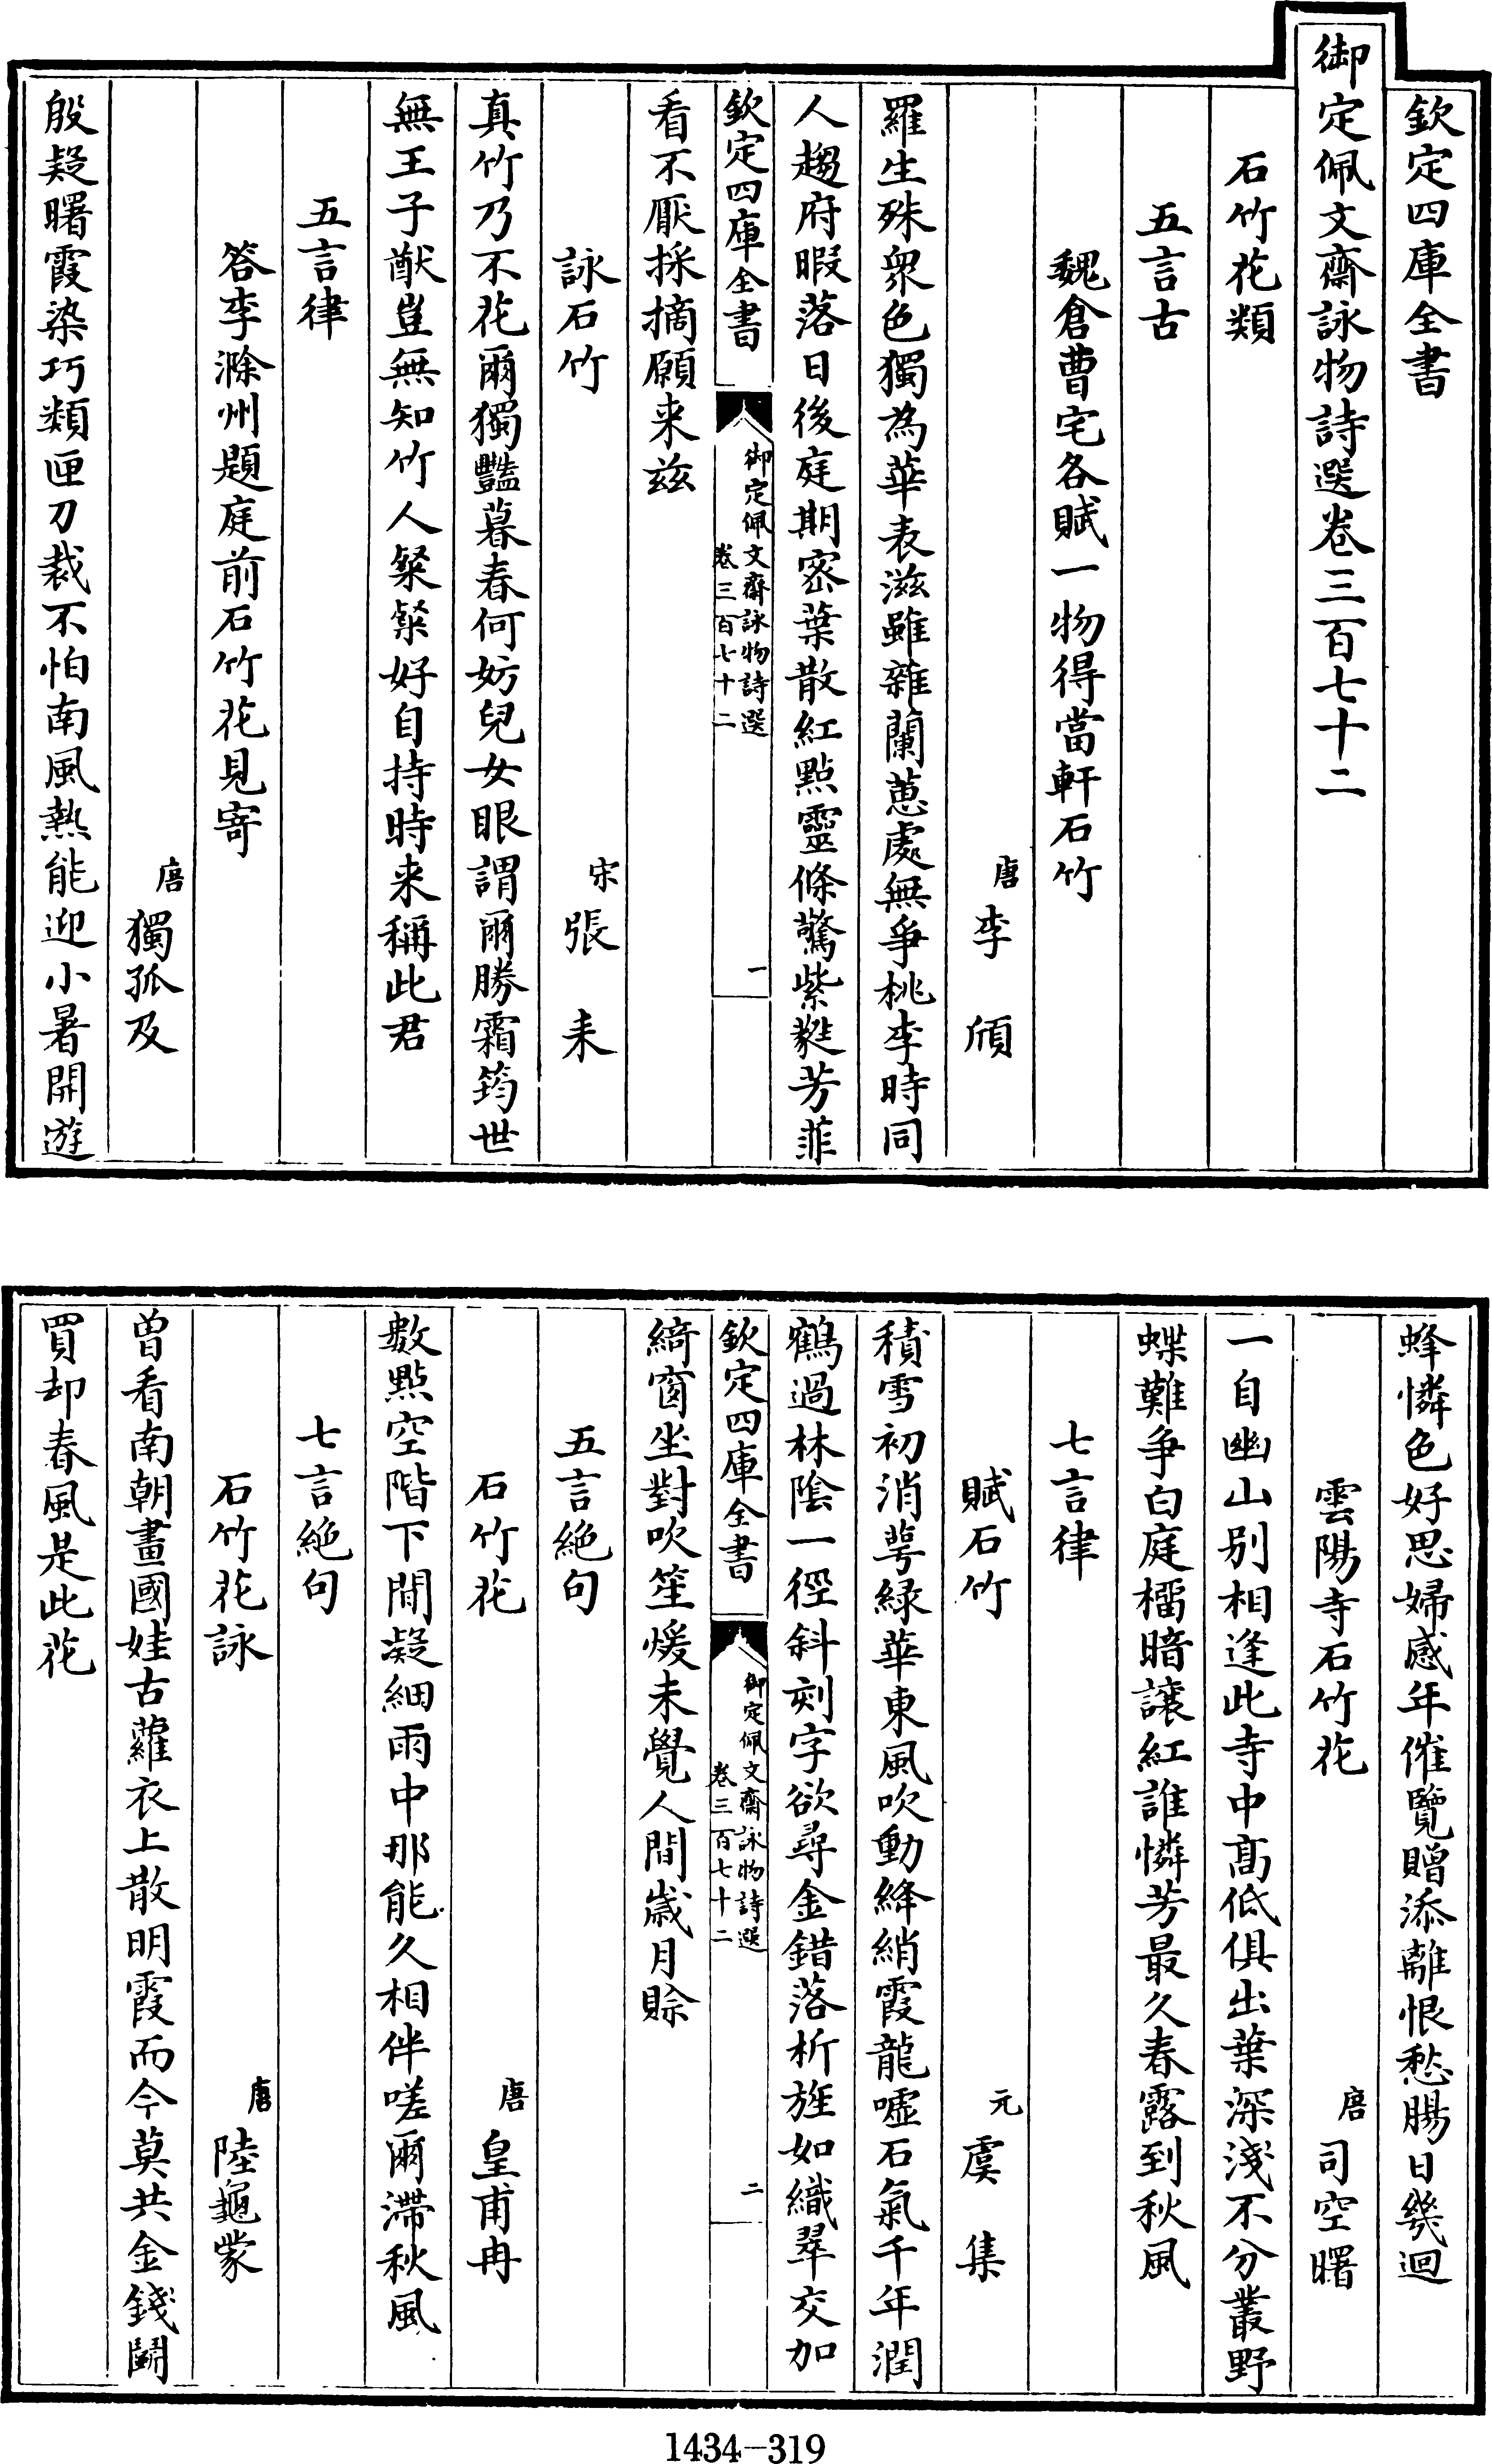 欽定四庫全書
御定佩文齋詠物詩選卷三百七十二
石竹花類
五言古
魏倉曹宅各賦一物得當軒石竹
唐李頎
羅生殊衆色獨為華表滋雖雜蘭蕙處無爭桃李時同
人趨府暇落日後庭期密葉散紅點靈條驚紫蕤芳菲
欽定四庫全書
御定佩文齋詠物詩選
卷三百七十二
一
看不厭採摘願来兹
詠石竹
宋張耒
真竹乃不花爾獨豔暮春何妨兒女眼謂爾勝霜筠世
無王子猷豈無知竹人粲粲好自持時来稱此君
五言律
答李滁州題庭前石竹花見寄
唐獨孤及
殷疑曙霞染巧類匣刀裁不怕南風熱能迎小暑開遊
蜂憐色好思婦感年催覽贈添離恨愁腸日幾迴
雲陽寺石竹花
唐司空曙
一自幽山别相逢此寺中髙低俱出葉深淺不分叢野
蝶難爭白庭榴暗讓紅誰憐芳最久春露到秋風
七言律
賦石竹
元虞集
積雪初消萼緑華東風吹動絳綃霞龍嘘石氣千年潤
鶴過林陰一徑斜刻字欲尋金錯落析旌如織翠交加
欽定四庫全書
御定佩文齋詠物詩選
卷三百七十二
二
綺窗坐對吹笙煖未覺人間歲月賒
五言絶句
石竹花
唐皇甫冉
數點空階下閒凝細雨中那能久相伴嗟爾滯秋風
七言絶句
石竹花詠
唐陸龜蒙
曽看南朝畫國娃古蘿衣上散明霞而今莫共金錢鬬
買却春風是此花
1434-319